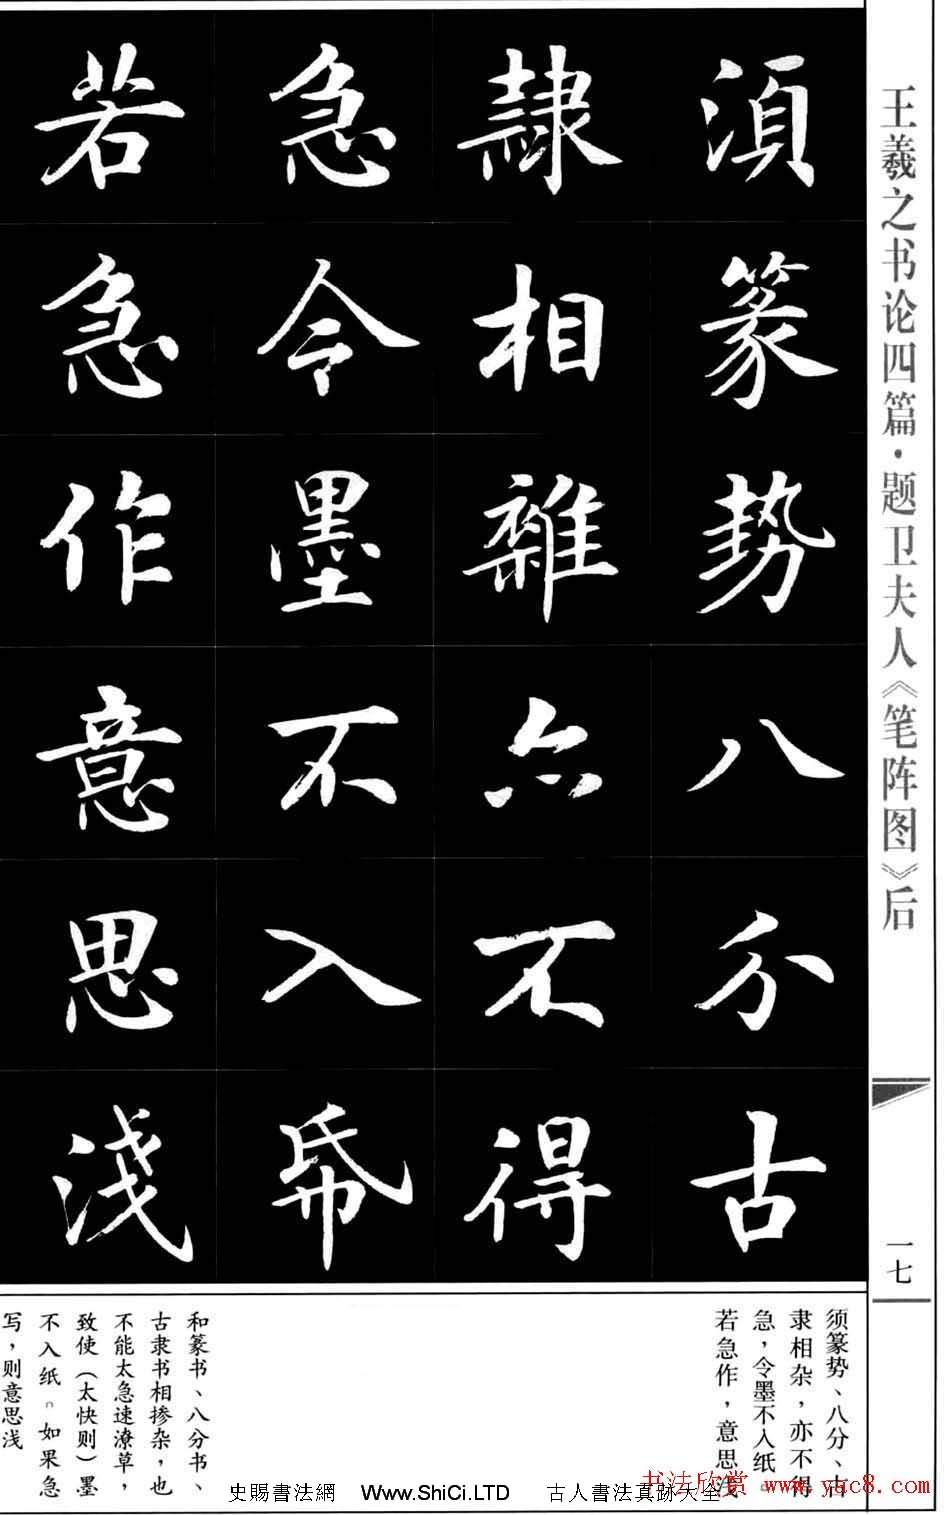 王羲之书论四篇·题卫夫人《笔阵图》后
一七
須篆勢八分古
隷相雜亦不得
急令墨不入帋
若急作意思淺
须篆势、八分、古
隶相杂，亦不得
急，令墨不入纸。
若急作，意思浅
和篆书、八分书、
古隶书相掺杂，也
不能太急速潦草，
致使（太快则）墨
不入纸。如果急
写，则意思浅
史賜書法網 Www.ShiCi.LTD 古人書法真跡大全
书法欣赏 www.yac8.com